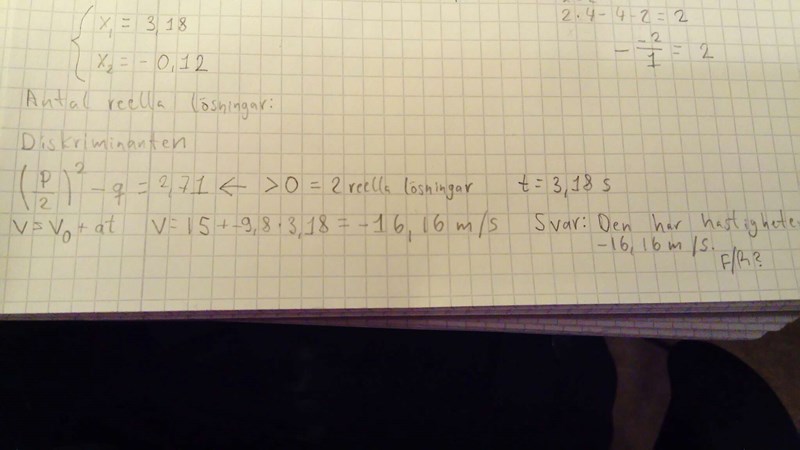 x₁ = 3,18
x₂ = - 0,12
2·4-4·2=2
- -2/1 = 2
Antal reella lösningar:
Diskriminanten
(p/2)² - q = 2,71 ← >0 = 2 reella lösningar t = 3,18 s
V=V₀+at V=15+-9,8·3,18=-16,16 m/s Svar: Den har hastigheten
-16,16 m/s.
F/R?